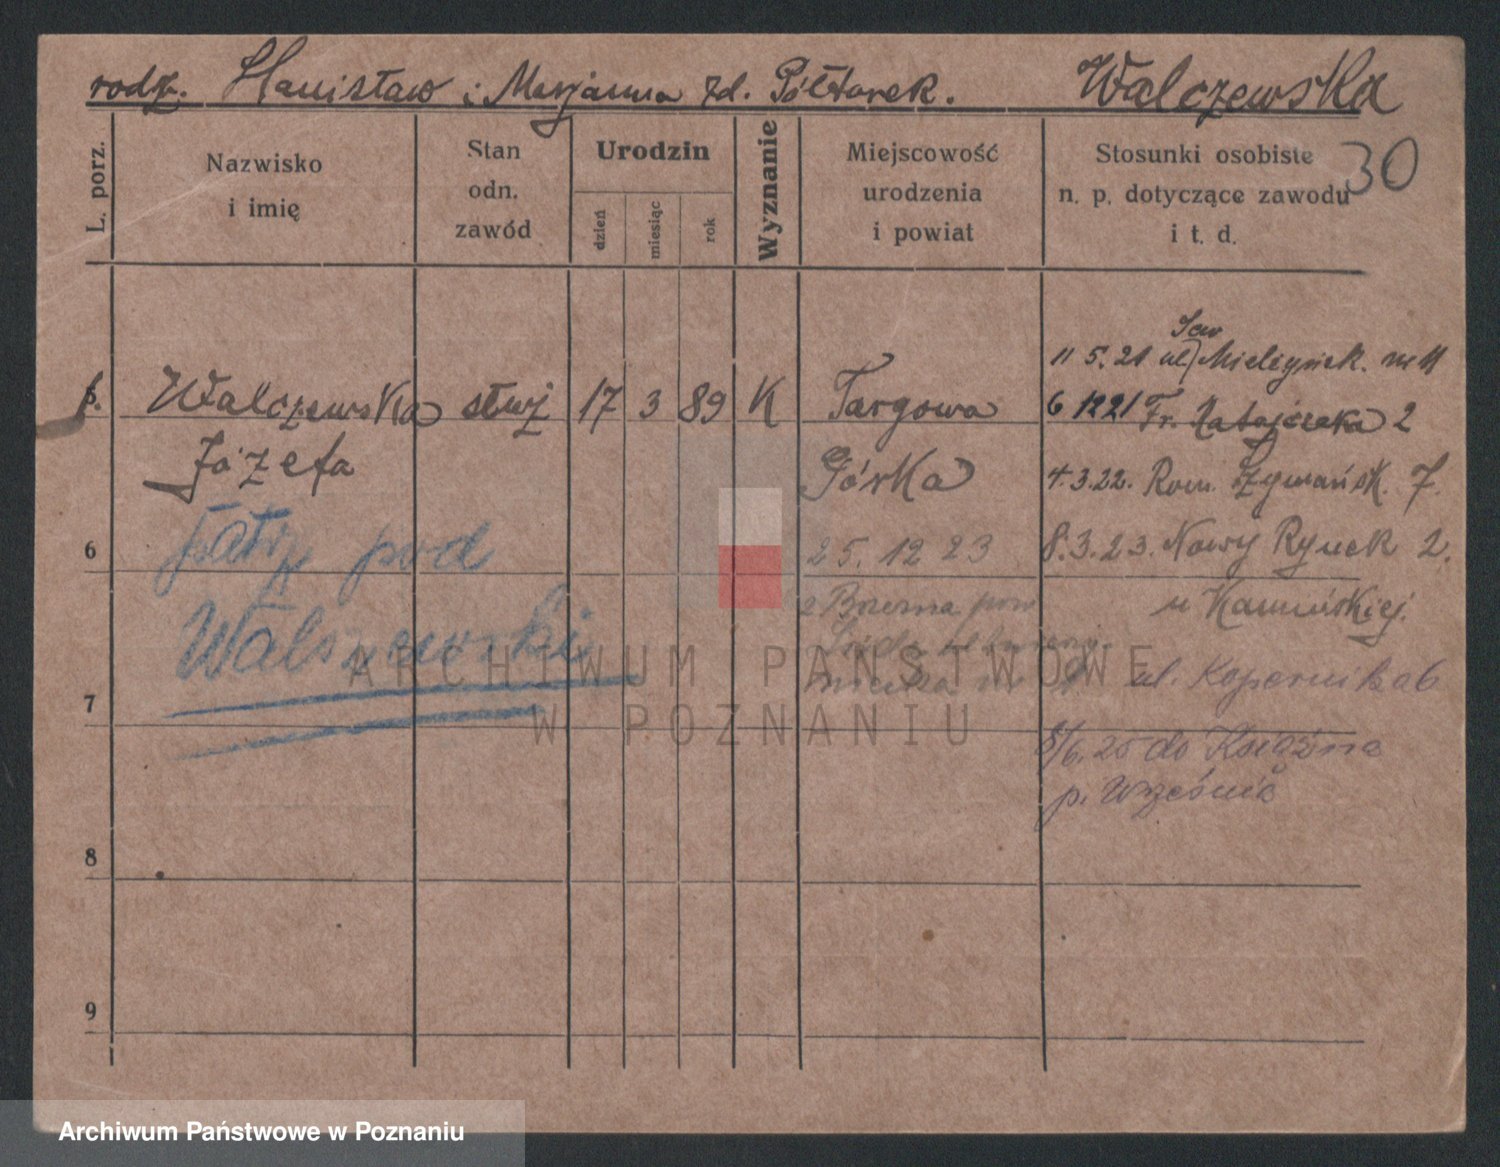 rodz. Stanisław i Marjanna zd. Półtorak. Walczewska
30
L. porz.
Nazwisko
i imię
Stan
odn.
zawód
Urodzin
dzień
miesiąc
rok
Wyznanie
Miejscowość
urodzenia
i powiat
Stosunki osobiste
n. p. dotyczące zawodu
i t. d.
Sew
11 5. 21 ul. Mielżyńsk. nr
5. Walczewska służ 17 3 89 K Targowa
6 12 21 Fr. Ratajczaka 2
Józefa
Górka
4.3.22. Rom. Szymańsk. 7.
patrz pod
25. 12 23
8.3.23. Nowy Rynek 2.
6
pow
u Kamińskiej.
Walczewski
ul. Kopernika 6
7
8/6.25 do Książna
p. Wrześnie
8
9
ARCHIWUM PAŃSTWOWE
W POZNANIU
Archiwum Państwowe w Poznaniu